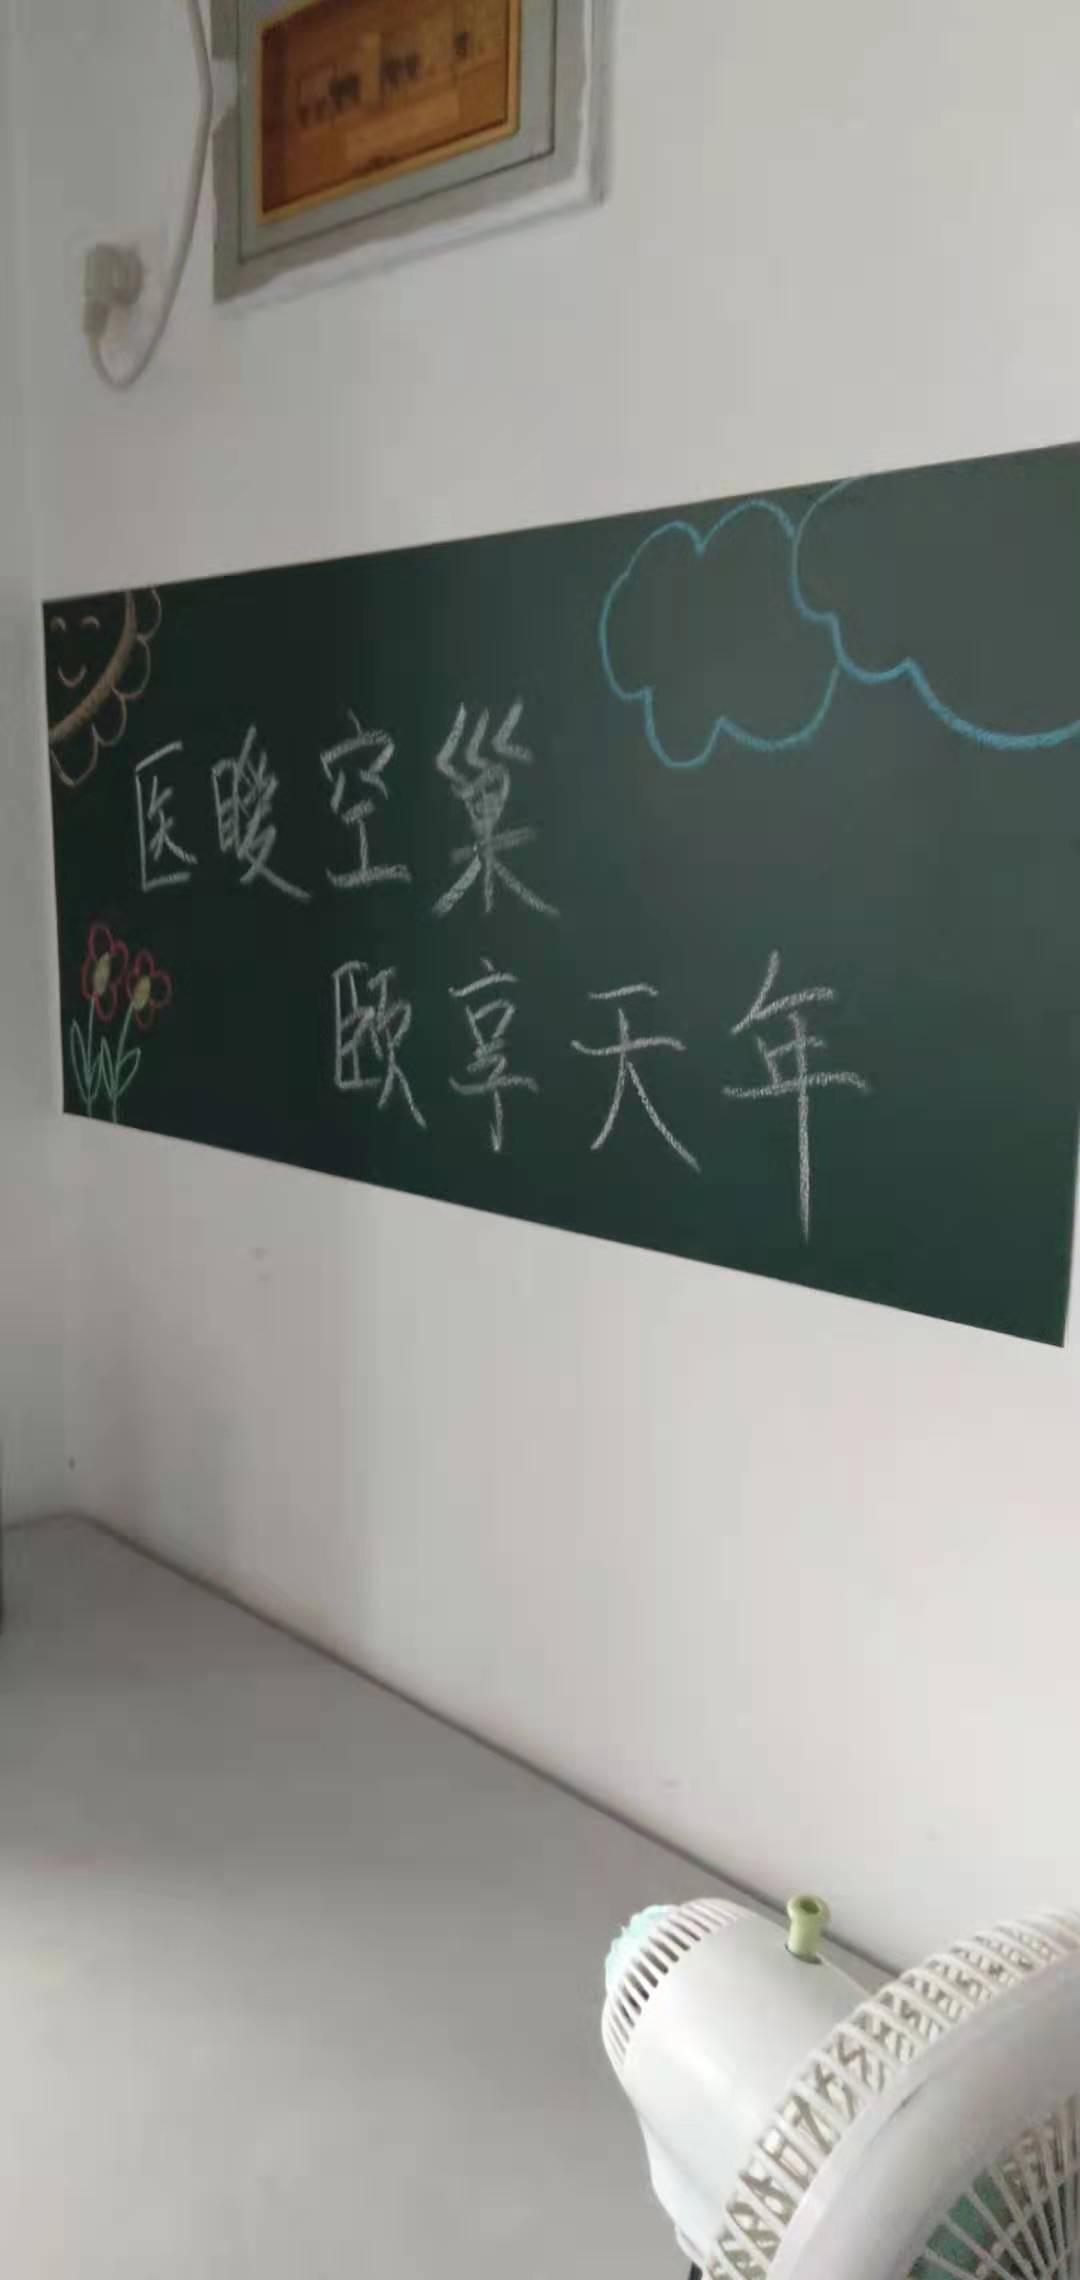 医暖空巢
颐享天年